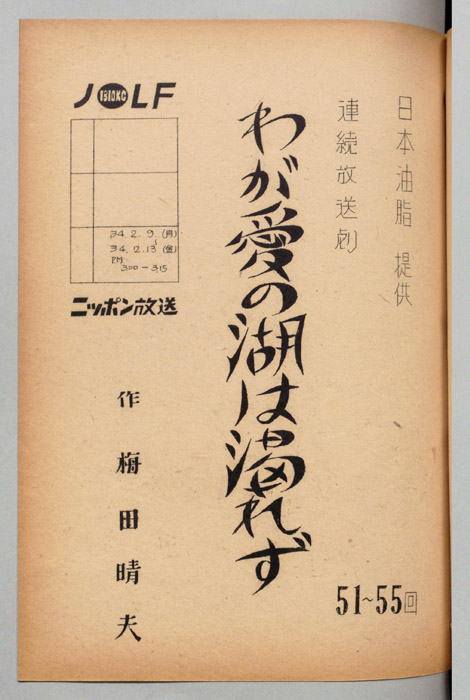 日本油脂 提供
連続放送劇
わが愛の湖は渇れず
51~55回
JOLF
1310KC
34.2.9.(月)
~
34.12.13(金)
PM
3.00-3.15
ニッポン放送
作 梅田晴夫